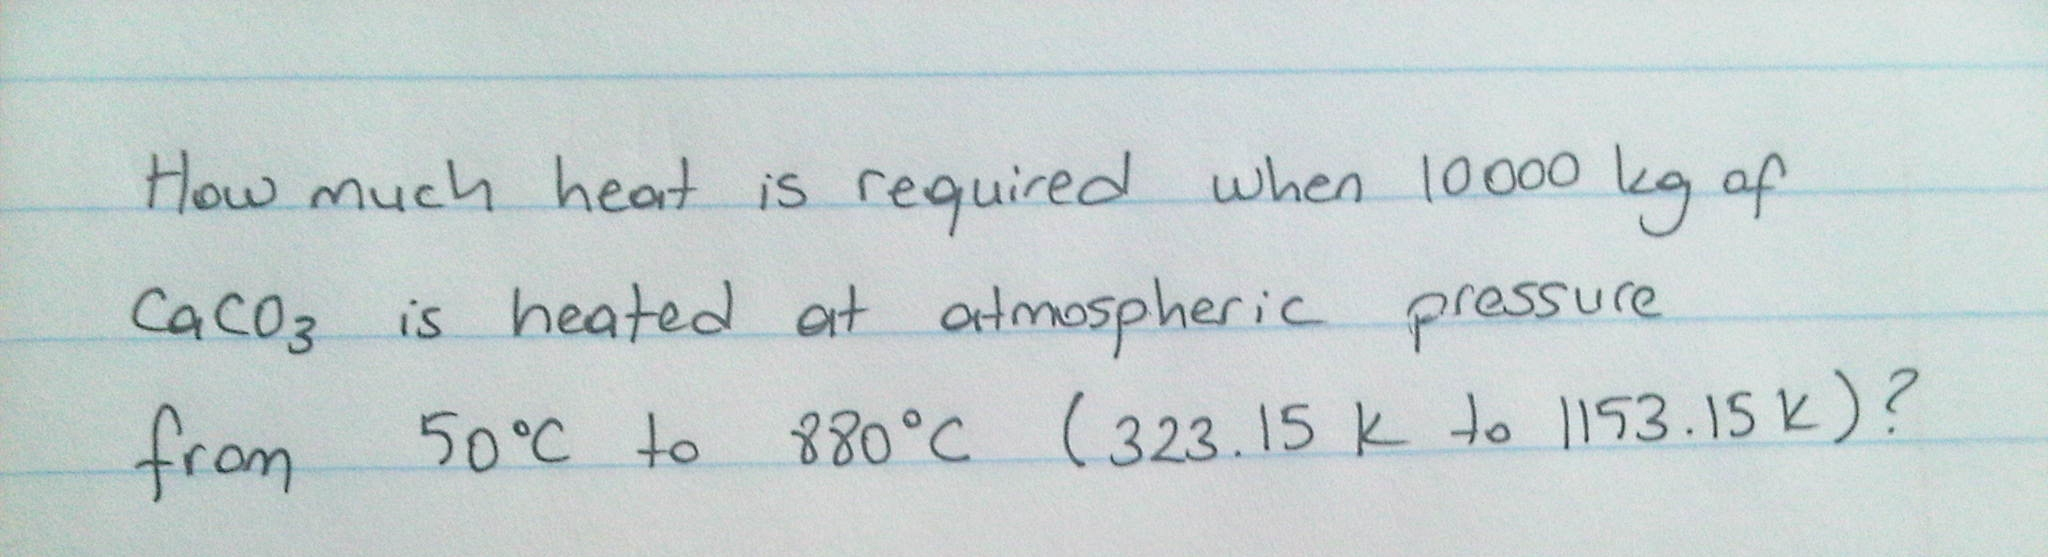 How much heat is required when 10000 kg of
CaCO₃ is heated at atmospheric pressure
from 50°C to 880°C (323.15 K to 1153.15 K)?